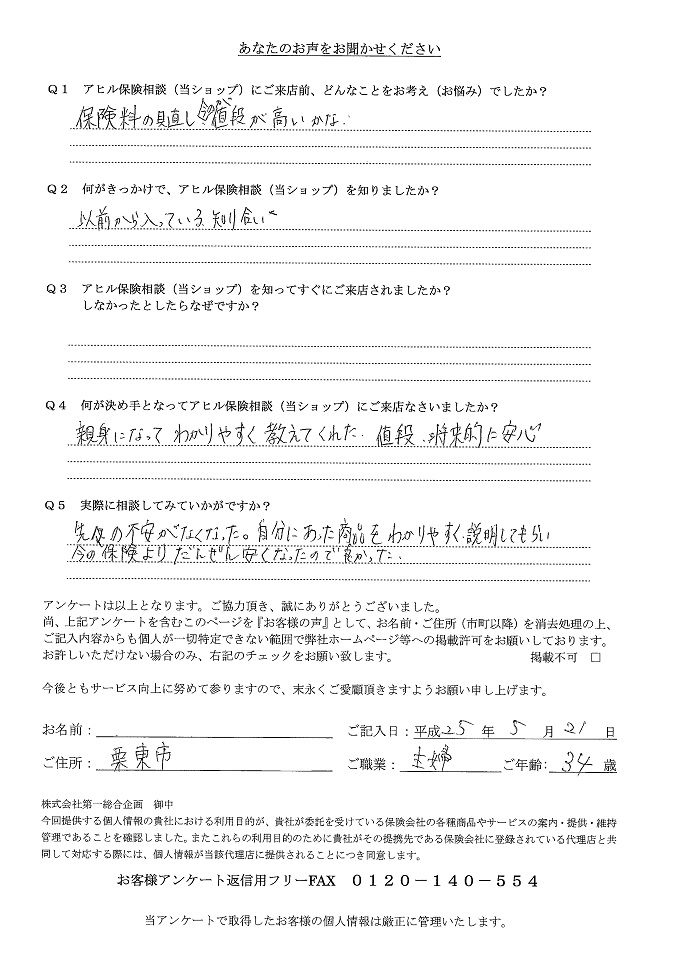 あなたのお声をお聞かせください
Q1 アヒル保険相談（当ショップ）にご来店前、どんなことをお考え（お悩み）でしたか？
保険料の見直し 値段が高いかな.
Q2 何がきっかけで、アヒル保険相談（当ショップ）を知りましたか？
以前から入っている 知り合い
Q3 アヒル保険相談（当ショップ）を知ってすぐにご来店されましたか？
しなかったとしたらなぜですか？
Q4 何が決め手となってアヒル保険相談（当ショップ）にご来店なさいましたか？
親身になって わかりやすく 教えてくれた. 値段. 将来的に安心
Q5 実際に相談してみていかがですか？
先々の不安がなくなった。自分にあった商品をわかりやすく説明してもらい
今の保険より だんぜん安くなったので良かった.
アンケートは以上となります。ご協力頂き、誠にありがとうございました。
尚、上記アンケートを含むこのページを『お客様の声』として、お名前・ご住所（市町以降）を消去処理の上、
ご記入内容からも個人が一切特定できない範囲で弊社ホームページ等への掲載許可をお願いしております。
お許しいただけない場合のみ、右記のチェックをお願い致します。 掲載不可 □
今後ともサービス向上に努めて参りますので、末永くご愛顧頂きますようお願い申し上げます。
お名前： ご記入日：平成25年 5月 21日
ご住所： 栗東市 ご職業： 主婦 ご年齢： 34 歳
株式会社第一総合企画 御中
今回提供する個人情報の貴社における利用目的が、貴社が委託を受けている保険会社の各種商品やサービスの案内・提供・維持
管理であることを確認しました。またこれらの利用目的のために貴社がその提携先である保険会社に登録されている代理店と共
同して対応する際には、個人情報が当該代理店に提供されることにつき同意します。
お客様アンケート返信用フリーFAX 0120－140－554
当アンケートで取得したお客様の個人情報は厳正に管理いたします。